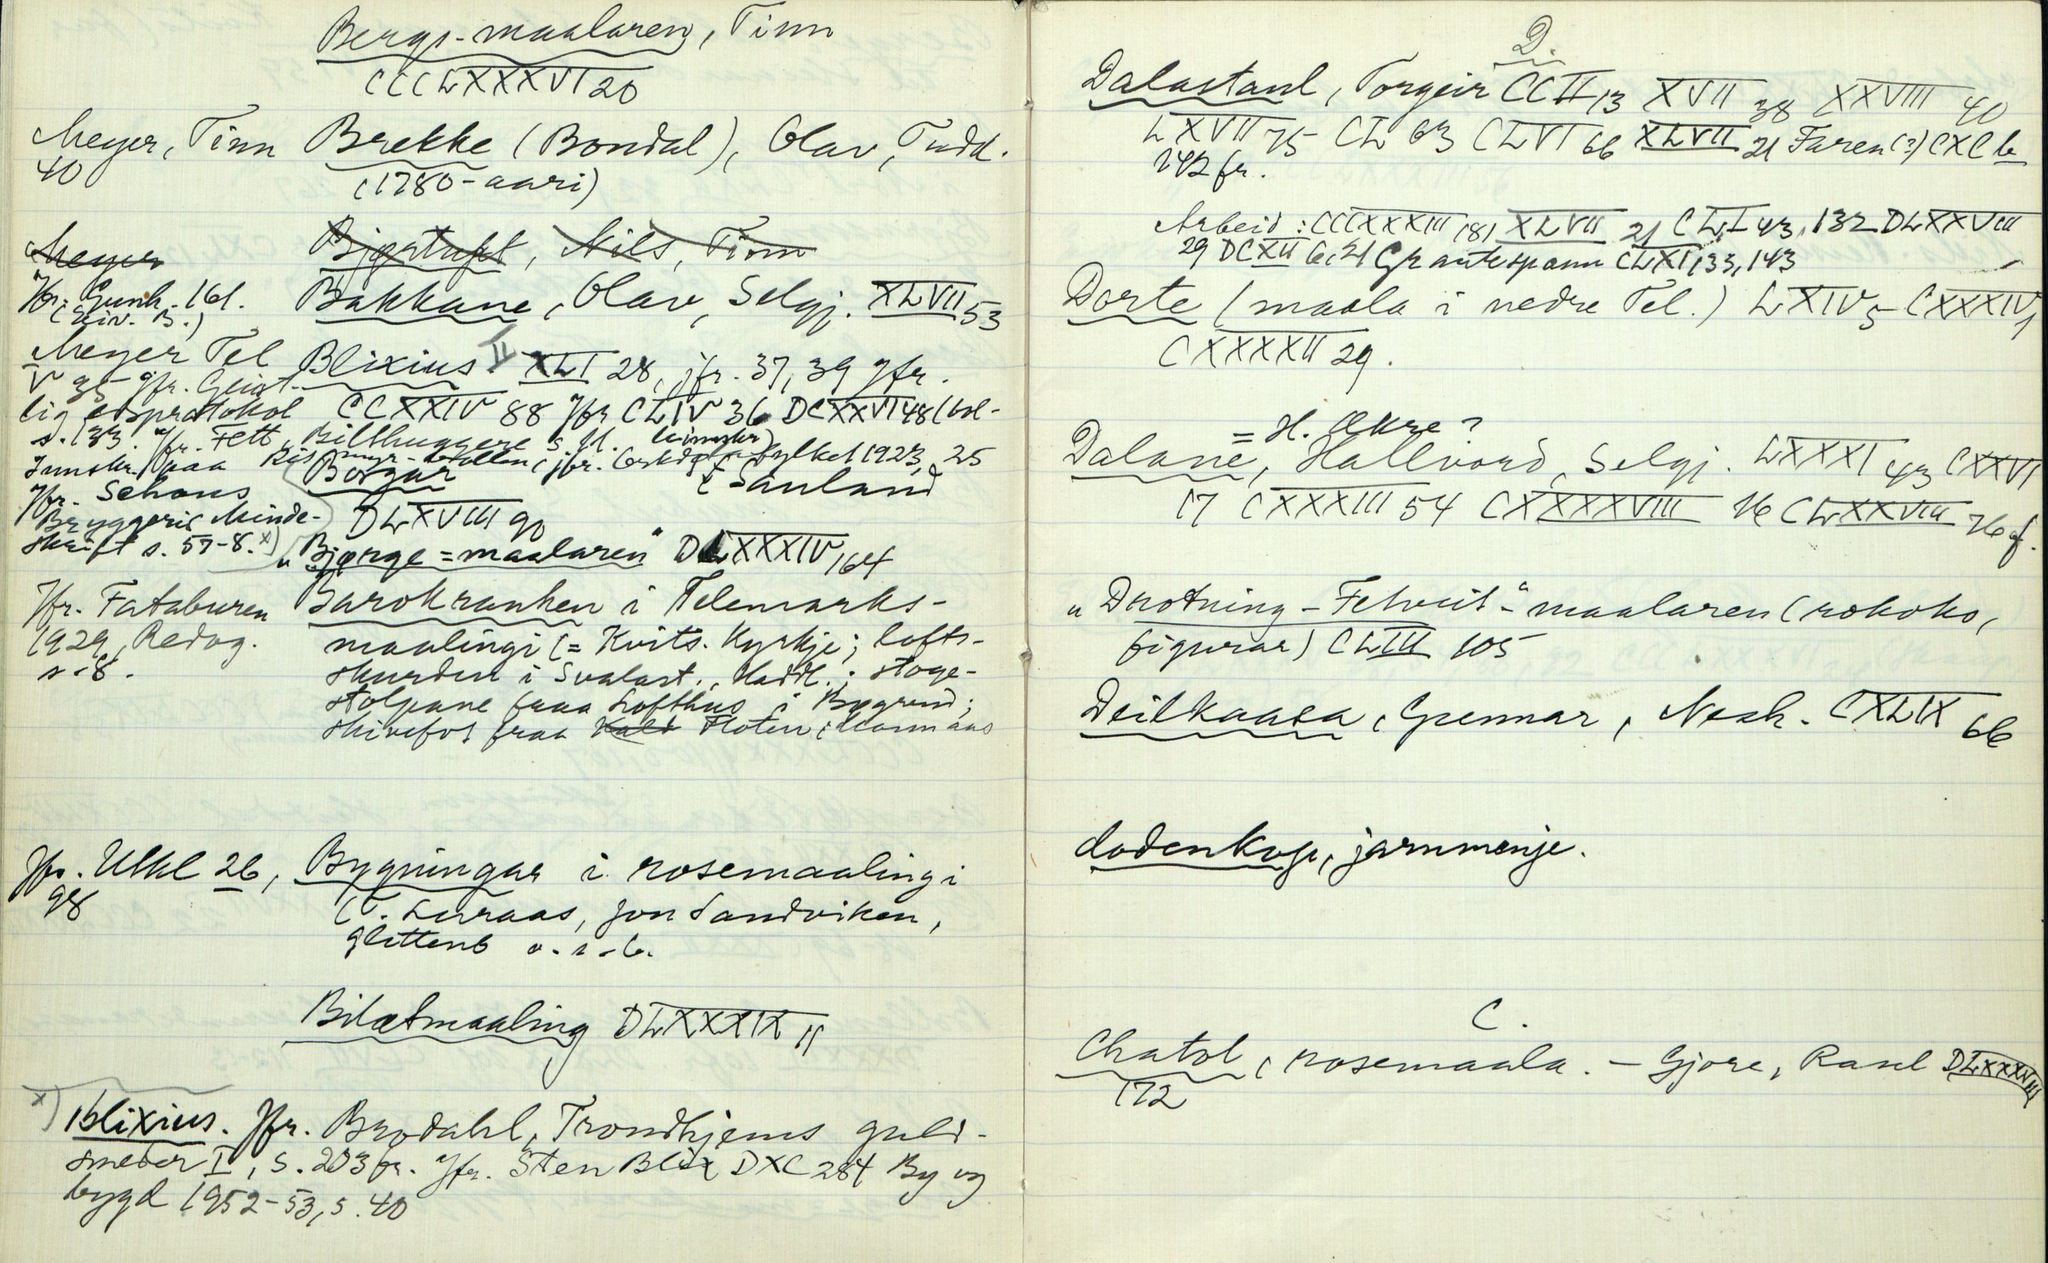 Bergs-maalaren, Tinn
CCCLXXXVI 20
Meyer, Tinn
40
Brekke (Bondal), Olav, Tudd.
(1780-aari)
Meyer
Bjørtuft, Nils, Tinn
Jfr. Gunh. 161.
(Eiv. B.)
Bakkane, Olav, Selgj. XLVII 53
Meyer Tel
V 35 jfr. Geist-
lig
s. 133. Jfr. Fett, Billhuggere s. 
Innskr. paa
Jfr. Schous
Bryggeris Minde-
skrift s. 57-8. x)
Blixius II XLI 28, jfr. 37, 39 Jfr.
CCXXIV 88 Jfr. CLIV 36 DCXXVI 48
fylket 1923, 25
Borgar i Sauland
DLXVIII 90
"Bjørge=maalaren" DLXXXIV 164
Jfr. Fataburen
1929, Redog.
s. 8.
Barokranken i Telemarks-
maalingi (= Kvits. Kyrkje; lofts-
skurden i Svalast., Hadd.; stoge-
stolpane fraa Lofthus i Bygrend;
skivefot fraa Floten, Mannaas
Jfr. Ulkl 26,
98
Bygningar i rosemaalingi
(T. Luraas, Jon Sandviken,
Glittenb o.s.b.
Bilætmaaling DLXXXIX 11
x) Blixius. Jfr. Brodahl, Trondhjems guld-
smeder I, s. 203 fr. Jfr. Sten Blix DXC 284 By og
bygd 1952-53, s. 40
D.
Dalastaul, Torgeir CCII 13 XVII 38 XXVIII 40
LXVII 75 CL 63 CLVI 66 XLVII 21 Faren(?) CXC b
142 fr.
Arbeid: CCCXXXIII 181 XLVII 21 CLI 43, 132 DLXXVIII
29 DCXII 6, 21 Grautespann CLXI, 33, 143
Dorte (maala i nedre Tel.) LXIV 5 CXXXIV 1
CXXXXII 29.
= H. Økre?
Dalane, Hallvord, Selgj. LXXXI 43 CXXVI
17 CXXXIII 54 CXXXXVIII 16 CLXXVIII 76 f.
"Drotning-Fetveit"-maalaren (rokoko,
figurar) CLIII 105
Deilkaasa, Gunnar, Nesh. CXLIX 66
dodenkop, jarnmønje.
C.
Chatol, rosemaala. - Gjøre, Raul DLXXXVIII
172